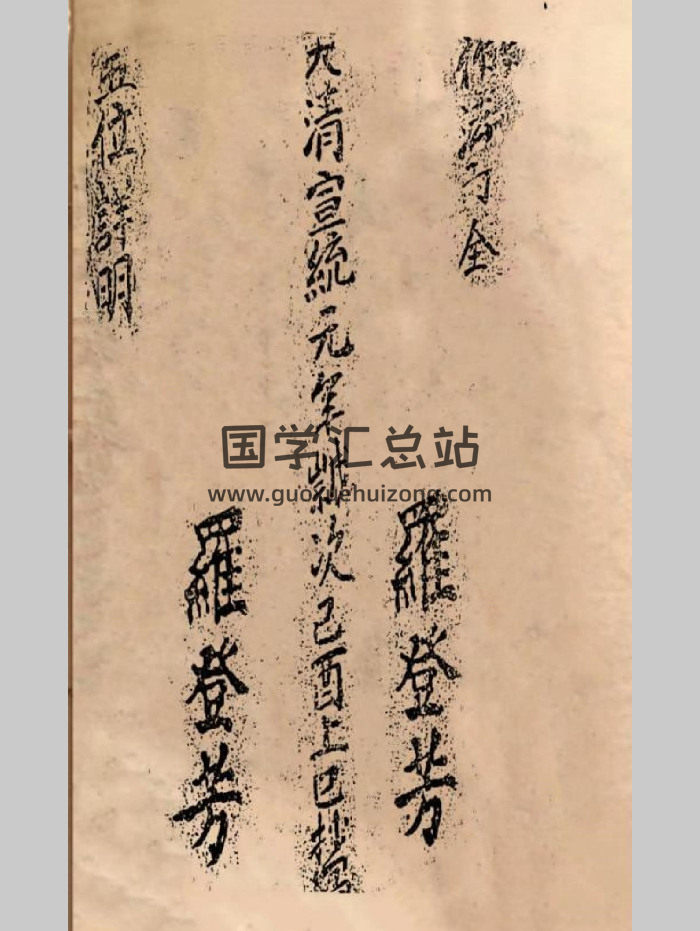 法 全
羅登芳
大清宣統元年歲次己酉上巳抄
羅登芳
五位詳明
国学汇总站
www.guoxuehuizong.com